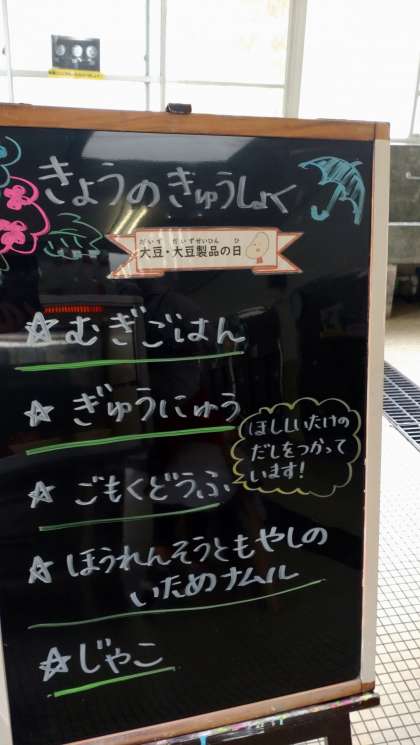 きょうのきゅうしょく
だいず だいずせいひん ひ
大豆・大豆製品の日
☆むぎごはん
☆ぎゅうにゅう
ほししいたけの
だしをつかって
います!
☆ごもくどうふ
☆ほうれんそうともやしの
いためナムル
☆じゃこ